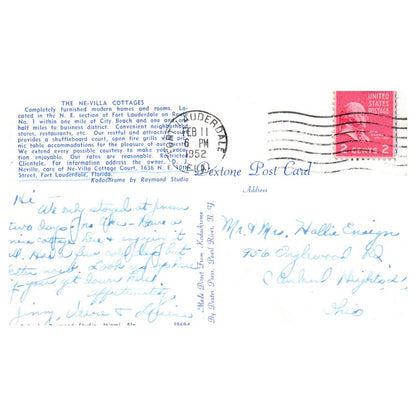 THE NE-VILLA COTTAGES
Completely furnished modern homes and rooms. Lo-
cated in the N. E. section of Fort Lauderdale on Route
No. 1 within one mile of City Beach and one and one-
half miles to business district. Convenient neighborhood
stores, restaurants, etc. Our restful and attractive
provides a shuffleboard court, open fire grills and pic-
nic table accommodations for the pleasure of our guests.
We exert every possible courtesy to make your vaca-
tion enjoyable. Our rates are reasonable. Restricted
Clientele. For information address owner: D. J.
Neville, care of Ne-Villa Cottage Court, 1636 N. E.
Street, Fort Lauderdale, Florida.
Kodachrome by Raymond Studio
LAUDERDALE
FEB 11
6 PM
1952
FLA.
UNITED
STATES
POSTAGE
2 CENTS 2
Dextone Post Card
Address
Made Direct From Kodachrome
By Dexter Press, Pearl River, N. Y.
Hi
We only stayed at
two days. Have a
nice cottage here & enjoying it
all. Had a few cold days but
better now. Look us up
if you get down here
opportunity.
Jinny, Vere & Louise
Mr & Mrs. Hallie Ensign
956 Englewood Rd
Cleveland Heights
Ohio
Raymond Studio, Miami, Fla.